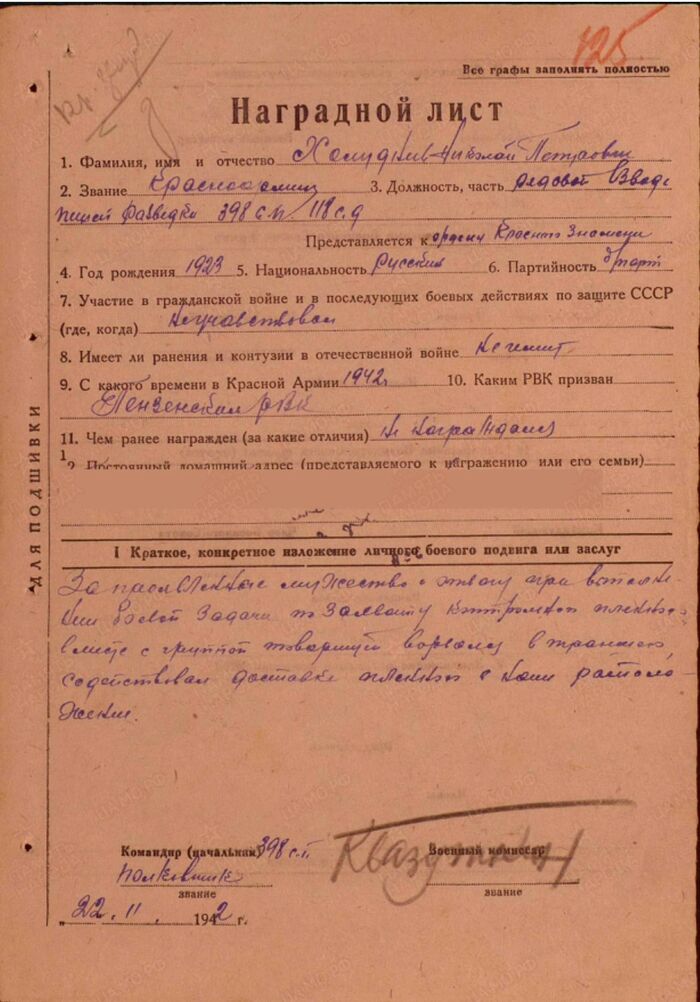 125.
Все графы заполнять полностью
Наградной лист
1. Фамилия, имя и отчество Николай Петрович
2. Звание Красноармеец 3. Должность, часть рядовой взвода
пешей разведки 398 с.п. 118 с.д
Представляется к ордену Красного Знамени
4. Год рождения 1923 5. Национальность Русский 6. Партийность б/парт
7. Участие в гражданской войне и в последующих боевых действиях по защите СССР
(где, когда) Не участвовал
8. Имеет ли ранения и контузии в отечественной войне Не имеет
9. С какого времени в Красной Армии 1942г 10. Каким РВК призван
Пензенским РВК
11. Чем ранее награжден (за какие отличия) Не награждался
12. Постоянный домашний адрес (представляемого к награждению или его семьи)
I Краткое, конкретное изложение личного боевого подвига или заслуг
За проявленные мужество и отвагу при выполне-
нии боевой задачи по захвату контрольного пленного
вместе с группой товарищей ворвался в траншею,
содействовал доставке пленного в наше располо-
жение.
Командир (начальник) 398 с.п. Военный комиссар
полковник
звание звание
„22. 11. 1942 г.
ДЛЯ ПОДШИВКИ